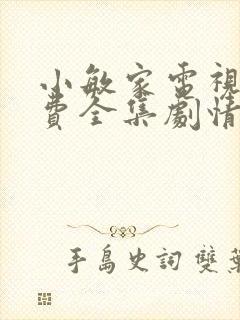 小敏家電視
費全集劇情
手島史詞 雙葉